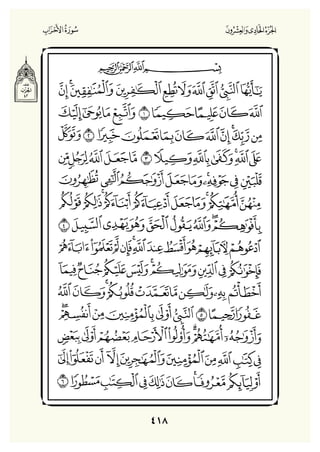 الجُزْءُ الحَادِي وَالعِشْرُونَ
سُورَةُ الأَحْزَابِ
بِسْمِ ٱللَّهِ ٱلرَّحْمَٰنِ ٱلرَّحِيمِ
يَٰٓأَيُّهَا ٱلنَّبِيُّ ٱتَّقِ ٱللَّهَ وَلَا تُطِعِ ٱلْكَٰفِرِينَ وَٱلْمُنَٰفِقِينَۗ إِنَّ
ٱللَّهَ كَانَ عَلِيمًا حَكِيمٗا ١ وَٱتَّبِعْ مَا يُوحَىٰٓ إِلَيْكَ
مِن رَّبِّكَۚ إِنَّ ٱللَّهَ كَانَ بِمَا تَعْمَلُونَ خَبِيرٗا ٢ وَتَوَكَّلْ
عَلَى ٱللَّهِۚ وَكَفَىٰ بِٱللَّهِ وَكِيلٗا ٣ مَّا جَعَلَ ٱللَّهُ لِرَجُلٖ مِّن
قَلْبَيْنِ فِي جَوْفِهِۦۚ وَمَا جَعَلَ أَزْوَٰجَكُمُ ٱلَّٰٓـِٔي تُظَٰهِرُونَ
مِنْهُنَّ أُمَّهَٰتِكُمْۚ وَمَا جَعَلَ أَدْعِيَآءَكُمْ أَبْنَآءَكُمْۚ ذَٰلِكُمْ قَوْلُكُم
بِأَفْوَٰهِكُمْۖ وَٱللَّهُ يَقُولُ ٱلْحَقَّ وَهُوَ يَهْدِي ٱلسَّبِيلَ ٤
ٱدْعُوهُمْ لِأٓبَآئِهِمْ هُوَ أَقْسَطُ عِندَ ٱللَّهِۚ فَإِن لَّمْ تَعْلَمُوٓا۟ ءَابَآءَهُمْ
فَإِخْوَٰنُكُمْ فِي ٱلدِّينِ وَمَوَٰلِيكُمْۚ وَلَيْسَ عَلَيْكُمْ جُنَاحٞ فِيمَآ
أَخْطَأْتُم بِهِۦ وَلَٰكِن مَّا تَعَمَّدَتْ قُلُوبُكُمْۚ وَكَانَ ٱللَّهُ
غَفُورٗا رَّحِيمًا ٥ ٱلنَّبِيُّ أَوْلَىٰ بِٱلْمُؤْمِنِينَ مِنْ أَنفُسِهِمْۖ
وَأَزْوَٰجُهُۥٓ أُمَّهَٰتُهُمْۗ وَأُو۟لُوا۟ ٱلْأَرْحَامِ بَعْضُهُمْ أَوْلَىٰ بِبَعْضٖ
فِي كِتَٰبِ ٱللَّهِ مِنَ ٱلْمُؤْمِنِينَ وَٱلْمُهَٰجِرِينَ إِلَّآ أَن تَفْعَلُوٓا۟ إِلَىٰٓ
أَوْلِيَآئِكُم مَّعْرُوفٗاۚ كَانَ ذَٰلِكَ فِي ٱلْكِتَٰبِ مَسْطُورٗا ٦
٤١٨